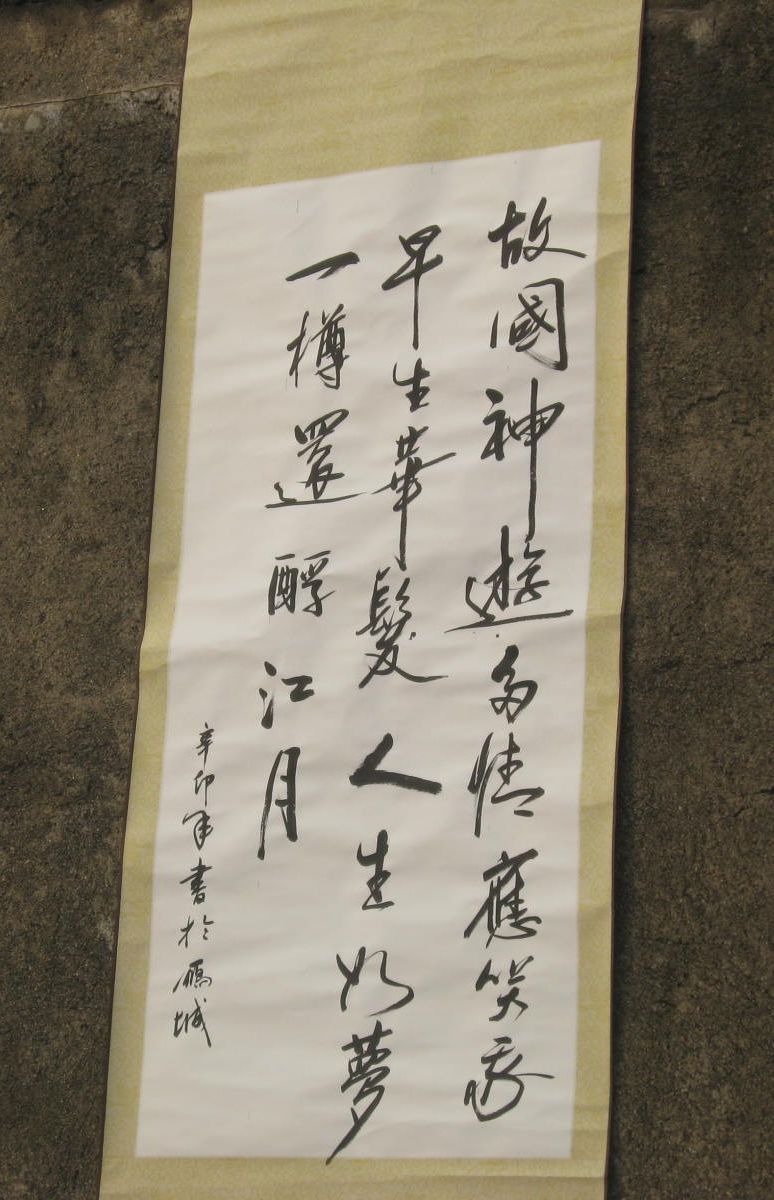 故國神遊多情應笑我
早生華髮人生如夢
一樽還酹江月
辛卯年書於雁城